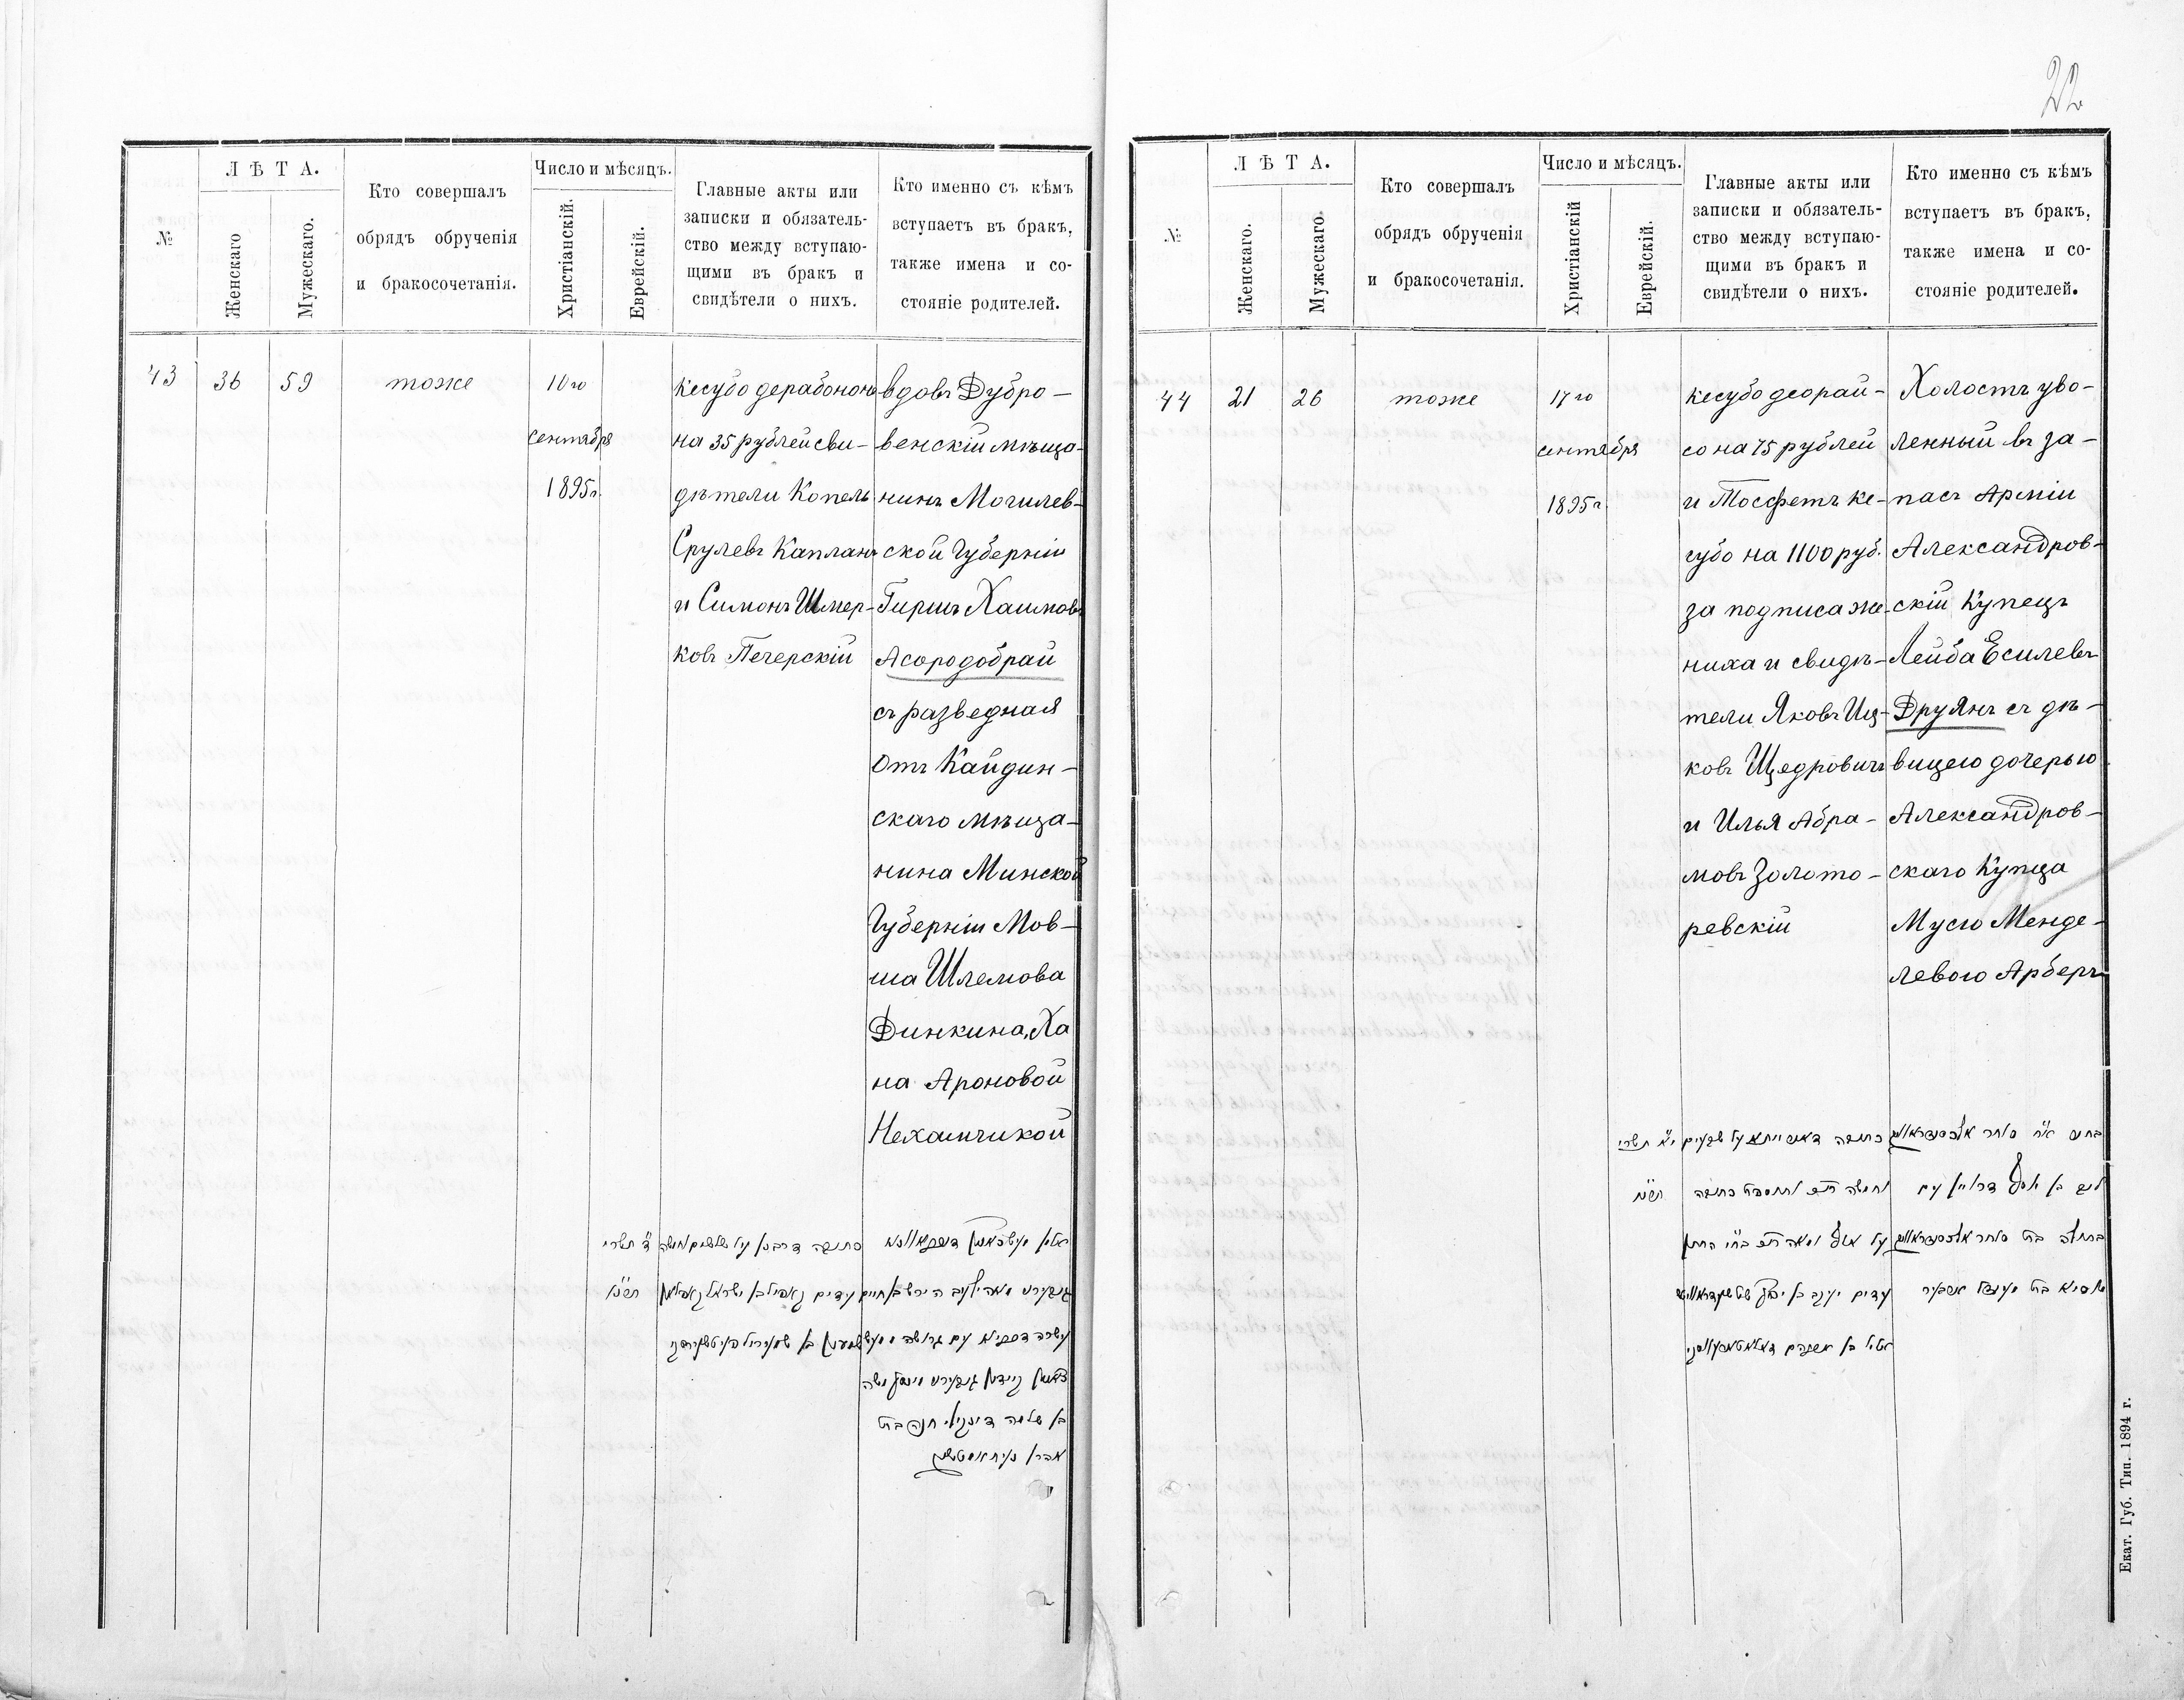 22
№
ЛѢТА.
Женскаго
Мужескаго.
Кто совершалъ
обрядъ обрученія
и бракосочетанія.
Число и мѣсяцъ.
Христіанскій.
Еврейскій.
Главные акты или
записки и обязатель-
ство между вступаю-
щими въ бракъ и
свидѣтели о нихъ.
Кто именно съ кѣмъ
вступаетъ въ бракъ,
также имена и со-
стояніе родителей.
43
36
59
тоже
10го
сентября
1895г.
кесубо дерабононъ
на 35 рублей сви-
дѣтели Копель
Срулевъ Капланъ
и Симонъ Шмер-
ковъ Печерскій
вдовъ Дубро-
венскій мѣща-
нинъ Могилев-
ской Губерніи
Гиршъ Хаимовъ
Асородобрай
съ разведная
отъ Кайдин-
скаго мѣща-
нина Минской
Губерніи Мов-
ша Шлемова
Динкина, Ха
на Ароновой
Нехамчикой
ד׳ תשרי
כתובה דרבנן על שלשים וחמשה
עדים קאפיל בן ישראל קאפלאן
בן שלמה דינקין חנה בת
№
ЛѢТА.
Женскаго.
Мужескаго.
Кто совершалъ
обрядъ обрученія
и бракосочетанія.
Число и мѣсяцъ.
Христіанскій
Еврейскій.
Главные акты или
записки и обязатель-
ство между вступаю-
щими въ бракъ и
свидѣтели о нихъ.
Кто именно съ кѣмъ
вступаетъ въ бракъ,
также имена и со-
стояніе родителей.
44
21
26
тоже
17го
сентября
1895г.
кесубо деорай-
со на 75 рублей
и Тосфетъ ке-
субо на 1100 руб.
за подписа же-
ниха и свидѣ-
тели Яковъ Иц-
ковъ Щедровичъ
и Илья Абра-
мовъ Золото-
ревскій
Холостъ уво-
ленный въ за-
пасъ Арміи
Александров-
скій Купецъ
Лейба Есилевъ
Друянъ съ дѣ-
вицею дочерью
Александров-
скаго Купца
Мусю Менде-
левою Арберъ
י״א תשרי
כתובה דאורייתא על שבעים
וחמשה
ותוספת כתובה
על אלף ומאה
עדים יעקב בן
בן אברהם
Екат. Губ. Тип. 1894 г.